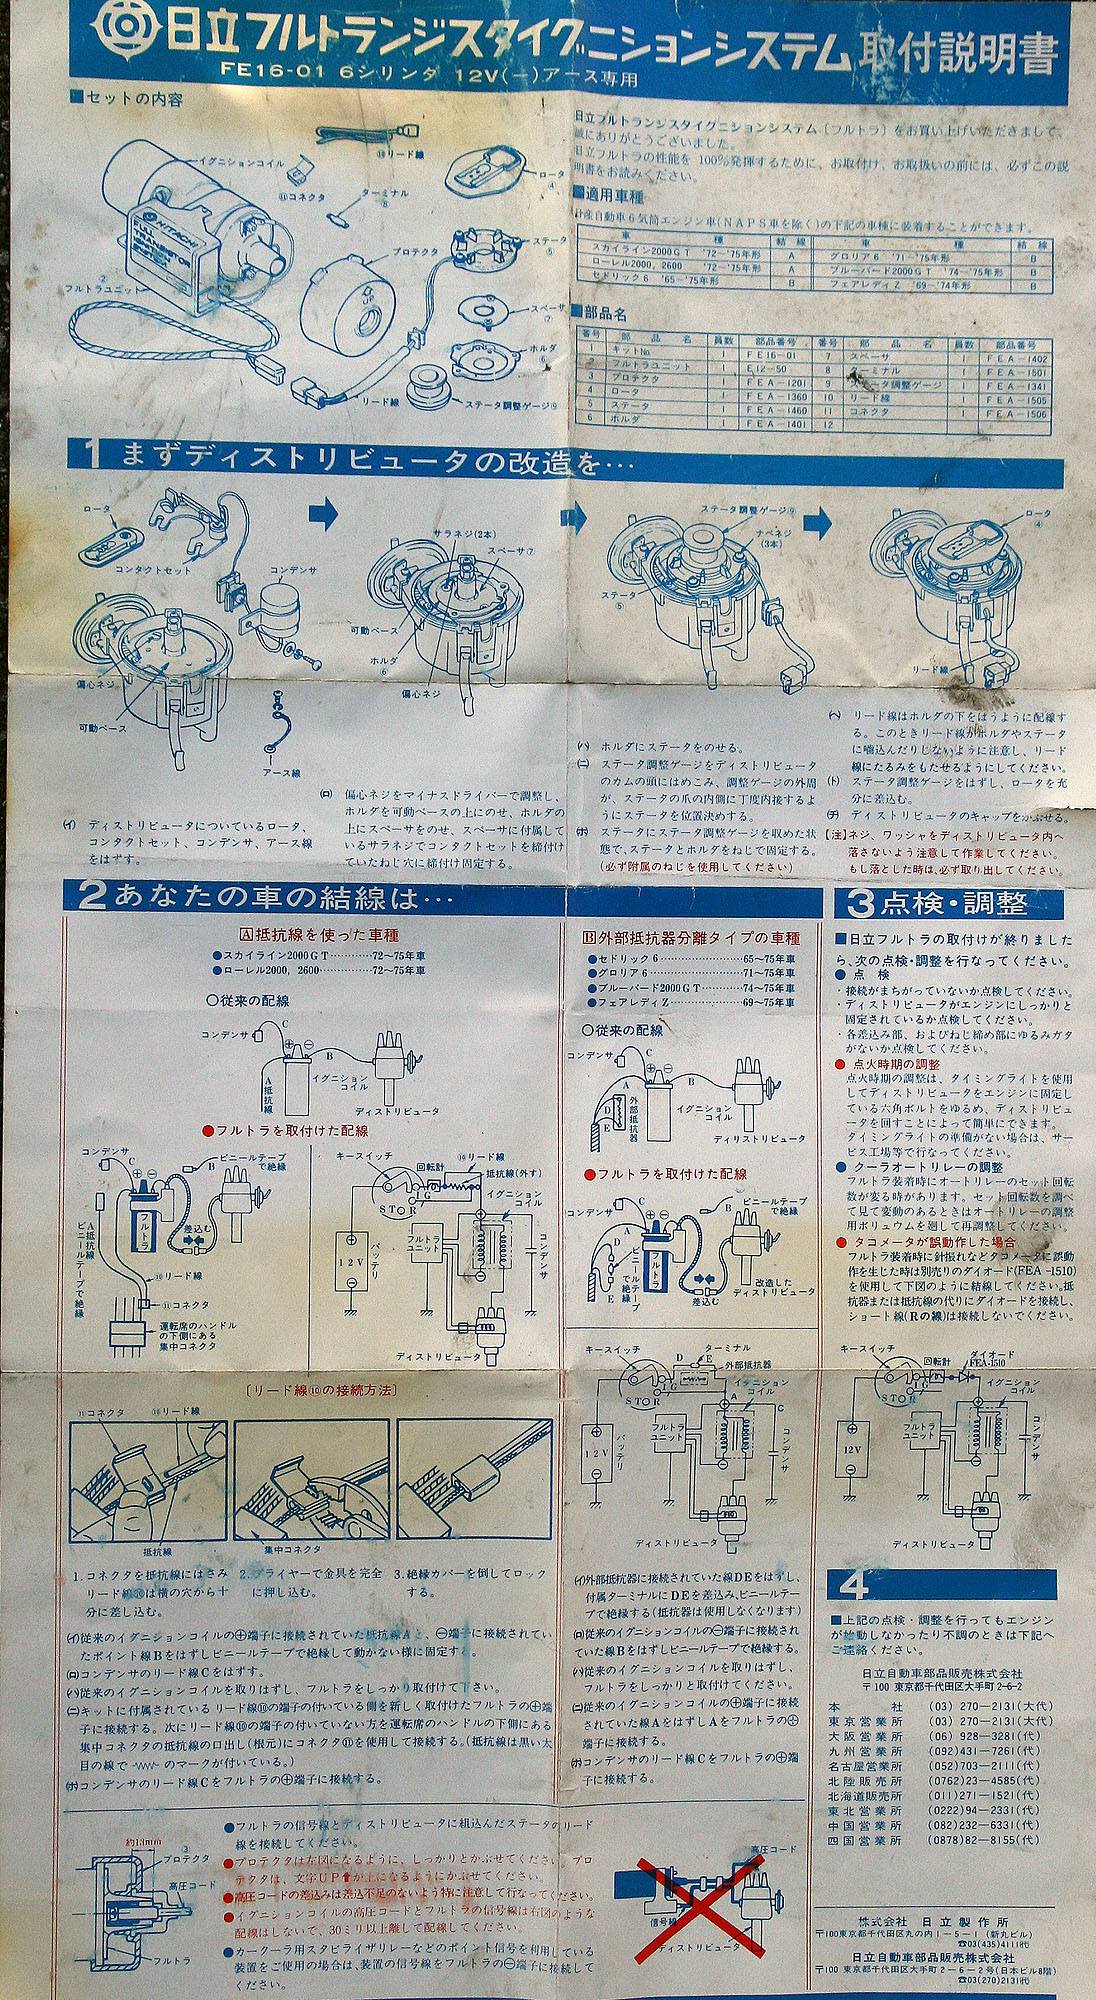 日立フルトランジスタイグニションシステム取付説明書
FE16-01 6シリンダ 12V(−)アース専用
■セットの内容
イグニションコイル
⑩リード線
⑪コネクタ
ターミナル
⑧
ロータ
④
プロテクタ
ステータ
⑤
HITACHI
FULL
TRANSISTOR
IGNITION
SYSTEM
②
フルトラユニット
スペーサ
⑦
ホルダ
⑥
リード線
ステータ調整ゲージ⑨
日立フルトランジスタイグニションシステム〔フルトラ〕をお買い上げいただきまして、
誠にありがとうございました。
日立フルトラの性能を 100%発揮するために、お取付け、お取扱いの前には、必ずこの説
明書をお読みください。
■適用車種
国産自動車6気筒エンジン車(NAPS車を除く)の下記の車種に装着することができます。
車 種 結線 車 種 結線
スカイライン2000GT '72〜'75年形 A グロリア6 '71〜'75年形 B
ローレル2000, 2600 '72〜'75年形 A ブルーバード2000GT '74〜'75年形 B
セドリック6 '65〜'75年形 B フェアレディZ '69〜'74年形 B
■部品名
番号 部品名 員数 部品番号 番号 部品名 員数 部品番号
1 キットNo. 1 FE16-01 7 スペーサ 1 FEA-1402
2 フルトラユニット 1 E12-50 8 ターミナル 1 FEA-1501
3 プロテクタ 1 FEA-1201 9 ステータ調整ゲージ 1 FEA-1341
4 ロータ 1 FEA-1360 10 リード線 1 FEA-1505
5 ステータ 1 FEA-1460 11 コネクタ 1 FEA-1506
6 ホルダ 1 FEA-1401 12
1 まずディストリビュータの改造を…
ロータ
コンタクトセット
コンデンサ
偏心ネジ
可動ベース
アース線
サラネジ(2本)
スペーサ⑦
可動ベース
ホルダ
⑥
偏心ネジ
ステータ調整ゲージ⑨
ナベネジ
(3本)
ステータ
⑤
ロータ
④
リード線
(イ) ディストリビュータについているロータ、
コンタクトセット、コンデンサ、アース線
をはずす。
(ロ) 偏心ネジをマイナスドライバーで調整し、
ホルダを可動ベースの上にのせ、ホルダの
上にスペーサをのせ、スペーサに付属して
いるサラネジでコンタクトセットを締付け
ていたねじ穴に締付け固定する。
(ハ) ホルダにステータをのせる。
(ニ) ステータ調整ゲージをディストリビュータ
のカムの頭にはめこみ、調整ゲージの外周
が、ステータの爪の内側に丁度内接するよ
うにステータを位置決めする。
(ホ) ステータにステータ調整ゲージを収めた状
態で、ステータとホルダをねじで固定する。
(必ず附属のねじを使用してください)
(ヘ) リード線はホルダの下をはうように配線す
る。このときリード線がホルダやステータ
に噛込んだりしないように注意し、リード
線にたるみをもたせるようにしてください。
(ト) ステータ調整ゲージをはずし、ロータを充
分に差込む。
(チ) ディストリビュータのキャップをかぶせる。
【注】ネジ、ワッシャをディストリビュータ内へ
落さないよう注意して作業してください。
もし落とした時は、必ず取り出してください。
2 あなたの車の結線は…
A 抵抗線を使った車種
●スカイライン2000GT…………72〜75年車
●ローレル2000, 2600…………72〜75年車
○従来の配線
コンデンサ
C
B
A
抵抗線
イグニション
コイル
ディストリビュータ
●フルトラを取付けた配線
コンデンサ
C
B
ビニールテープ
で絶縁
A 抵抗線
ビニールテープで絶縁
フルトラ
差込む
⑩リード線
⑪コネクタ
運転席のハンドル
の下側にある
集中コネクタ
キースイッチ
回転計
⑩リード線
抵抗線(外す)
イグニション
コイル
IG
STOR
フルトラ
ユニット
12V
バッテリ
コンデンサ
ディストリビュータ
〔リード線⑩の接続方法〕
⑪コネクタ
⑩リード線
抵抗線
集中コネクタ
1. コネクタを抵抗線にはさみ
リード線⑩は横の穴から十
分に差し込む。
2. プライヤーで金具を完全
に押し込む。
3. 絶縁カバーを倒してロック
する。
(イ)従来のイグニションコイルの⊕端子に接続されていた抵抗線Aと、⊖端子に接続されてい
たポイント線Bをはずしビニールテープで絶縁して動かない様に固定する。
(ロ)コンデンサのリード線Cをはずす。
(ハ)従来のイグニションコイルを取りはずし、フルトラをしっかり取付けて下さい。
(ニ)キットに付属されているリード線⑩の端子の付いている側を新しく取付けたフルトラの⊕端
子に接続する。次にリード線⑩の端子の付いていない方を運転席のハンドルの下側にある
集中コネクタの抵抗線の口出し(根元)にコネクタ⑪を使用して接続する。(抵抗線は黒い太
目の線で のマークが付いている。)
(ホ)コンデンサのリード線Cをフルトラの⊕端子に接続する。
B 外部抵抗器分離タイプの車種
●セドリック6……………………65〜75年車
●グロリア6………………………71〜75年車
●ブルーバード2000GT…………74〜75年車
●フェアレディZ…………………69〜75年車
○従来の配線
コンデンサ
C
A
B
D
E
外部抵抗器
イグニション
コイル
ディリストリビュータ
●フルトラを取付けた配線
コンデンサ
C
B
A
D
E
ビニールテープ
で絶縁
ビニールテープで絶縁
フルトラ
改造した
ディストリビュータ
差込む
キースイッチ
ターミナル
D E
外部抵抗器
イグニション
コイル
A
C
IG
STOR
フルトラ
ユニット
12V
バッテリ
コンデンサ
ディストリビュータ
(イ)外部抵抗器に接続されていた線DEをはずし、
付属ターミナルにDEを差込み、ビニールテー
プで絶縁する(抵抗器は使用しなくなります)
(ロ)従来のイグニションコイルの⊖端子に接続され
ていた線Bをはずしビニールテープで絶縁する。
(ハ)従来のイグニションコイルを取りはずし、
フルトラをしっかり取付けてください。
(ニ)従来のイグニションコイルの⊕端子に接続
されていた線AをはずしAをフルトラの⊕
端子に接続する。
(ホ)コンデンサのリード線Cをフルトラの⊕端
子に接続する。
3 点検・調整
■日立フルトラの取付けが終りました
ら、次の点検・調整を行なってください。
● 点 検
・接続がまちがっていないか点検してください。
・ディストリビュータがエンジンにしっかりと
固定されているか点検してください。
・各差込み部、およびねじ締め部にゆるみガタ
がないか点検してください。
● 点火時期の調整
点火時期の調整は、タイミングライトを使用
してディストリビュータをエンジンに固定し
ている六角ボルトをゆるめ、ディストリビュ
ータを回すことによって簡単にできます。
タイミングライトの準備がない場合は、サー
ビス工場等で行なってください。
● クーラオートリレーの調整
フルトラ装着時にオートリレーのセット回転
数が変る時があります。セット回転数を調べ
て見て変動のあるときはオートリレーの調整
用ボリュウムを廻して再調整してください。
● タコメータが誤動作した場合
フルトラ装着時に針振れなどタコメータに誤動
作を生じた時は別売りのダイオード(FEA-1510)
を使用して下図のように結線してください。抵
抗器または抵抗線の代りにダイオードを接続し、
ショート線(Rの線)は接続しないでください。
キースイッチ
回転計
ダイオード
FEA-1510
イグニション
コイル
IG
STOR
フルトラ
ユニット
12V
バッテリ
コンデンサ
ディストリビュータ
4
■上記の点検・調整を行ってもエンジン
が始動しなかったり不調のときは下記へ
ご連絡ください。
日立自動車部品販売株式会社
〒100 東京都千代田区大手町2-6-2
本社 (03) 270−2131(大代)
東京営業所 (03) 270−2131(大代)
大阪営業所 (06) 928−3281(代)
九州営業所 (092)431−7261(代)
名古屋営業所 (052)703−2111(代)
北陸販売所 (0762)23−4585(代)
北海道販売所 (011)271−1521(代)
東北営業所 (0222)94−2331(代)
中国営業所 (082)232−6331(代)
四国営業所 (0878)82−8155(代)
約13mm
③
プロテクタ
高圧コード
フルトラ
●フルトラの信号線とディストリビュータに組込んだステータのリード
線を接続してください。
●プロテクタは左図になるように、しっかりとかぶせてください。プロ
テクタは、文字UP⬆が上になるようにかぶせてください。
●高圧コードの差込みは差込不足のないよう特に注意して行なってください。
●イグニションコイルの高圧コードとフルトラの信号線は右図のような
配線はしないで、30ミリ以上離して配線してください。
●カークーラ用スタビライザリレーなどのポイント信号を利用している
装置をご使用の場合は、装置の信号線をフルトラの⊖端子に接続して
ください。
高圧コード
信号線
ディストリビュータ
株式会社 日立製作所
〒100東京都千代田区丸の内1−5−1(新丸ビル)
☎03(435)4111代
日立自動車部品販売株式会社
〒100 東京都千代田区大手町2−6−2号(日本ビル8階)
☎03(270)2131代